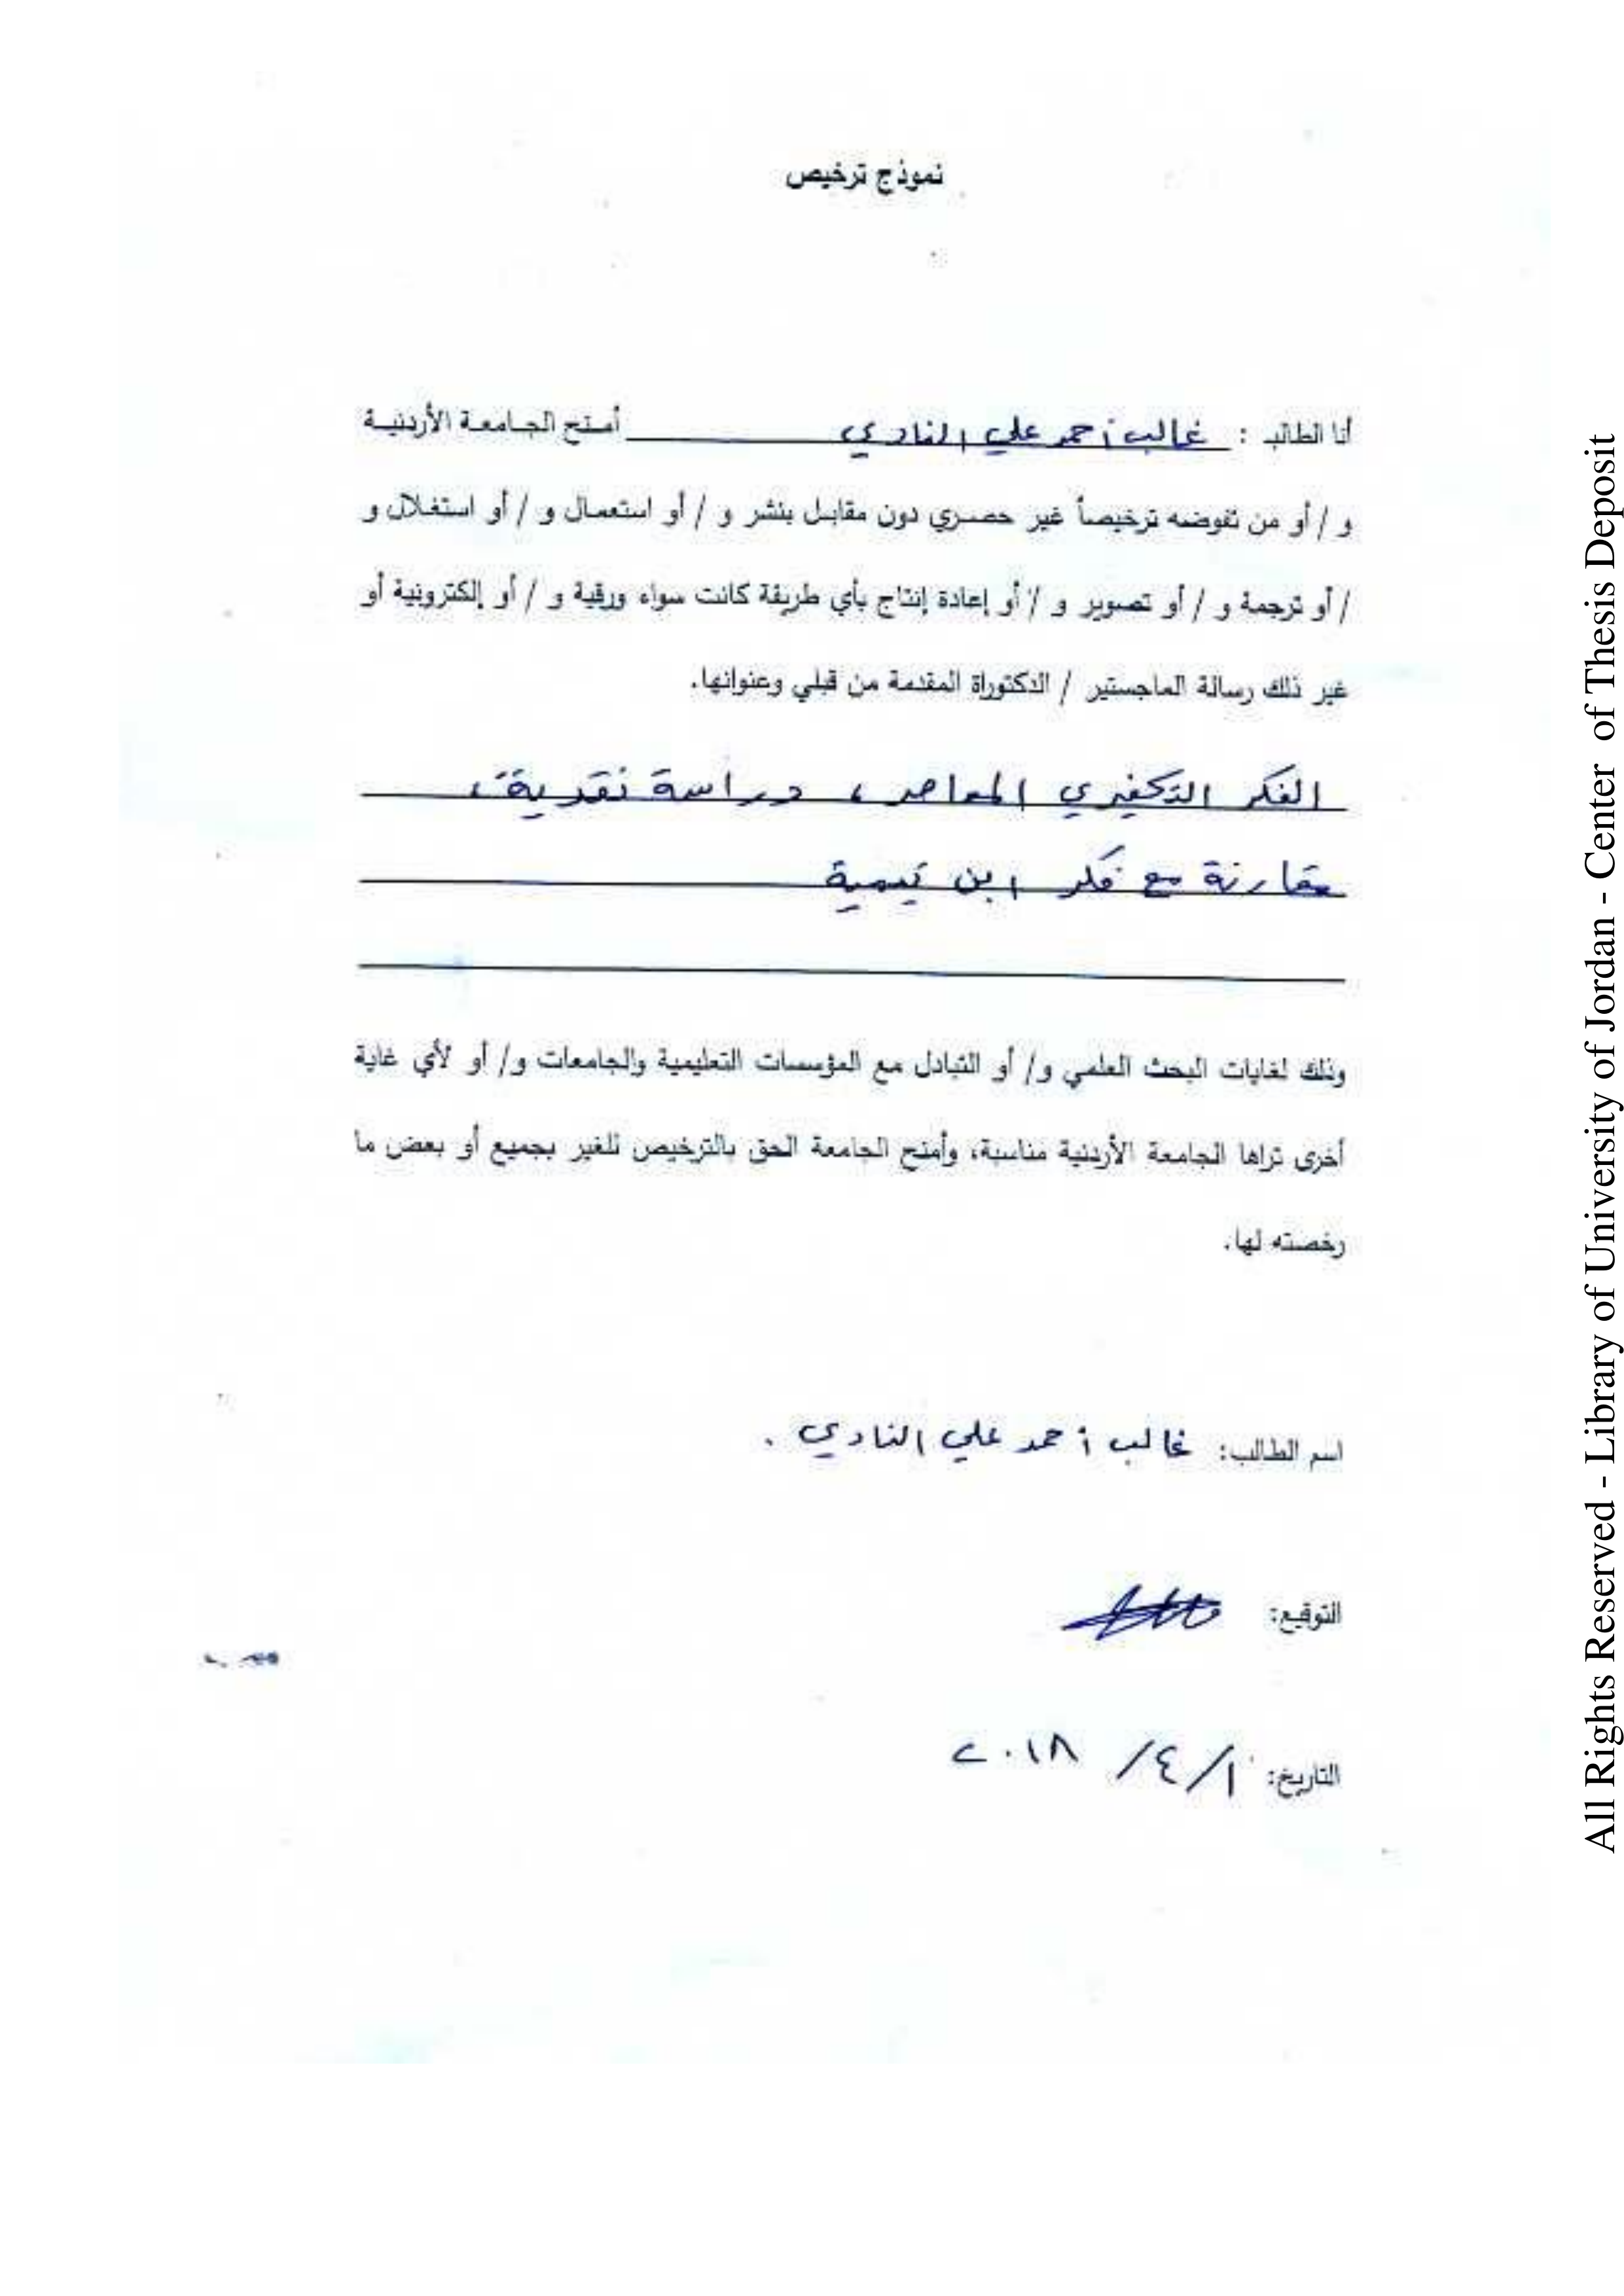 نموذج ترخيص
أنا الطالب : غالب أحمد علي النادي أمنح الجامعة الأردنية
و / أو من تفوضه ترخيصاً غير حصري دون مقابل بنشر و / أو استعمال و / أو استغلال و
/ أو ترجمة و / أو تصوير و / أو إعادة إنتاج بأي طريقة كانت سواء ورقية و / أو إلكترونية أو
غير ذلك رسالة الماجستير / الدكتوراة المقدمة من قبلي وعنوانها.
الفكر التكفيري المعاصر، دراسة نقدية،
مقارنة مع فكر ابن تيمية
وذلك لغايات البحث العلمي و/ أو التبادل مع المؤسسات التعليمية والجامعات و/ أو لأي غاية
أخرى تراها الجامعة الأردنية مناسبة، وأمنح الجامعة الحق بالترخيص للغير بجميع أو بعض ما
رخصته لها.
اسم الطالب: غالب أحمد علي النادي .
التوقيع:
التاريخ: ١ / ٤ / ٢٠١٨
All Rights Reserved - Library of University of Jordan - Center of Thesis Deposit